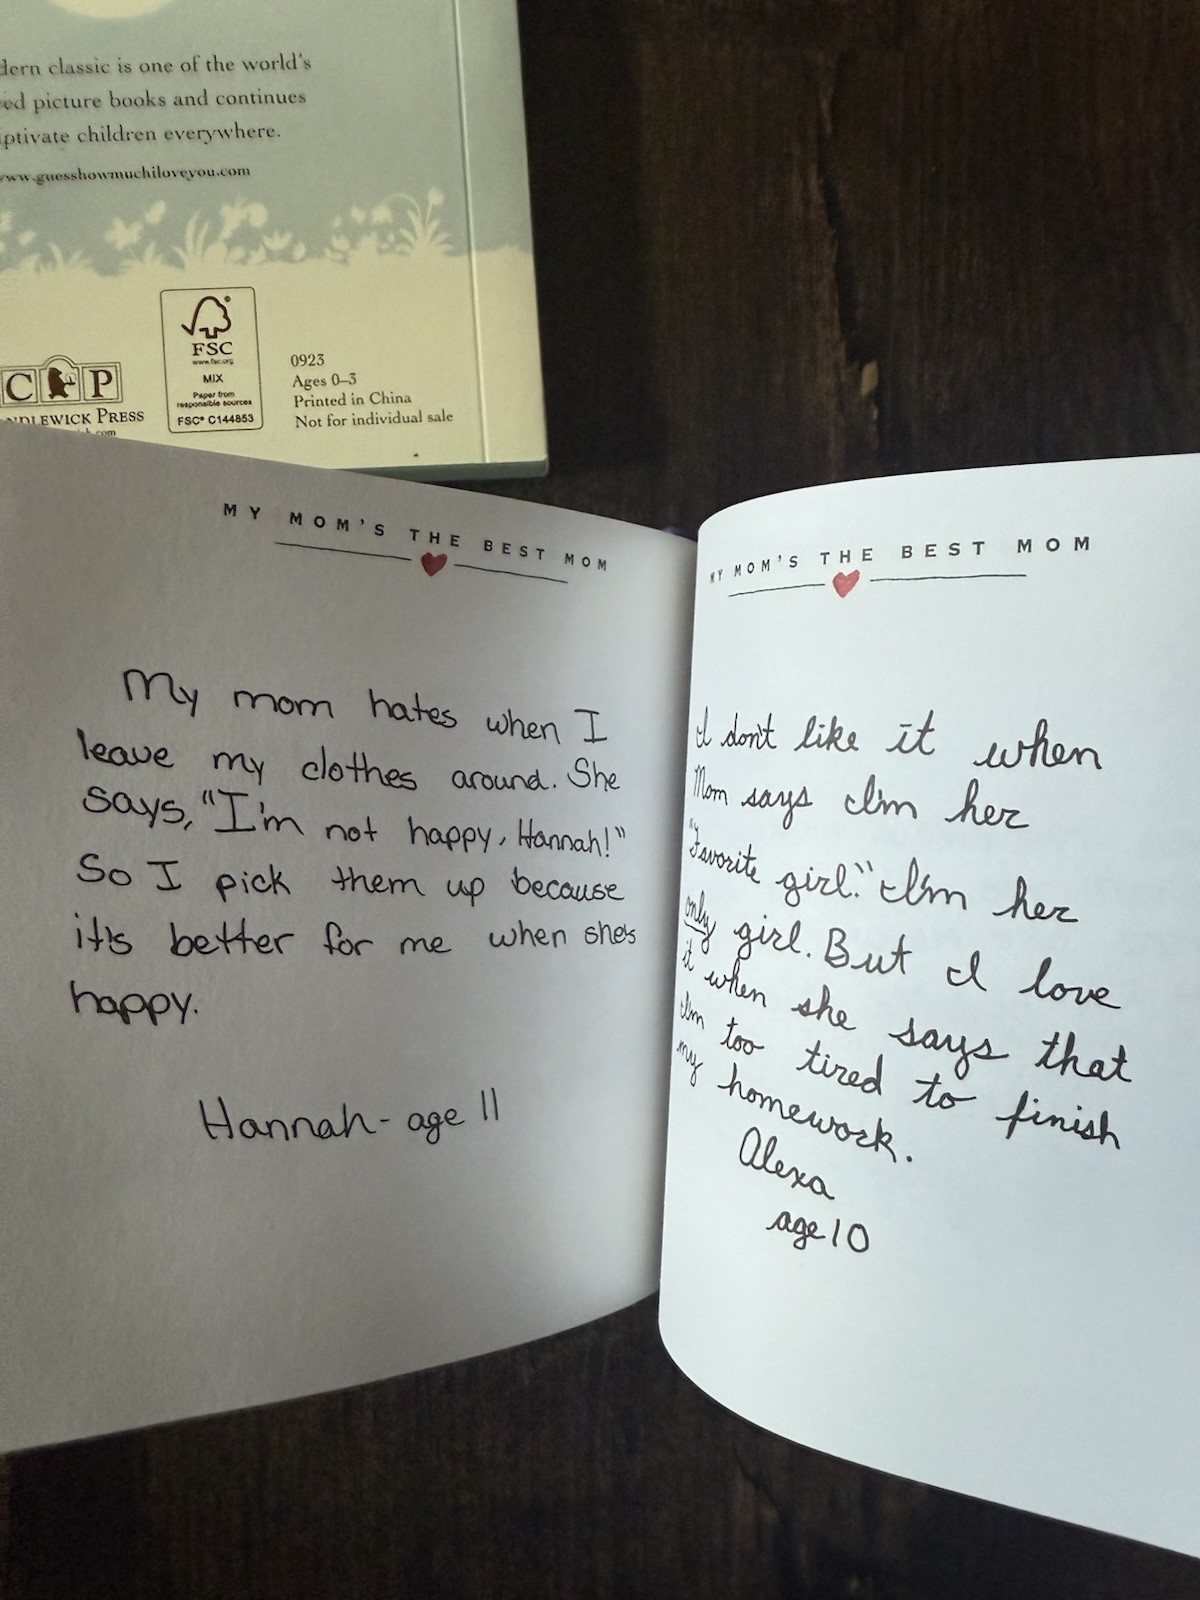 classic is one of the world's
picture books and continues
children everywhere.
www.guesshowmuchiloveyou.com
FSC
www.fsc.org
MIX
Paper from
responsible sources
FSC® C144853
C P
PRESS
0923
Ages 0–3
Printed in China
Not for individual sale
MY MOM'S THE BEST MOM
My mom hates when I
leave my clothes around. She
says, "I'm not happy, Hannah!"
So I pick them up because
it's better for me when she's
happy.
Hannah - age 11
MY MOM'S THE BEST MOM
I don't like it when
Mom says I'm her
"Favorite girl." I'm her
only girl. But I love
it when she says that
I'm too tired to finish
my homework.
Alexa
age 10